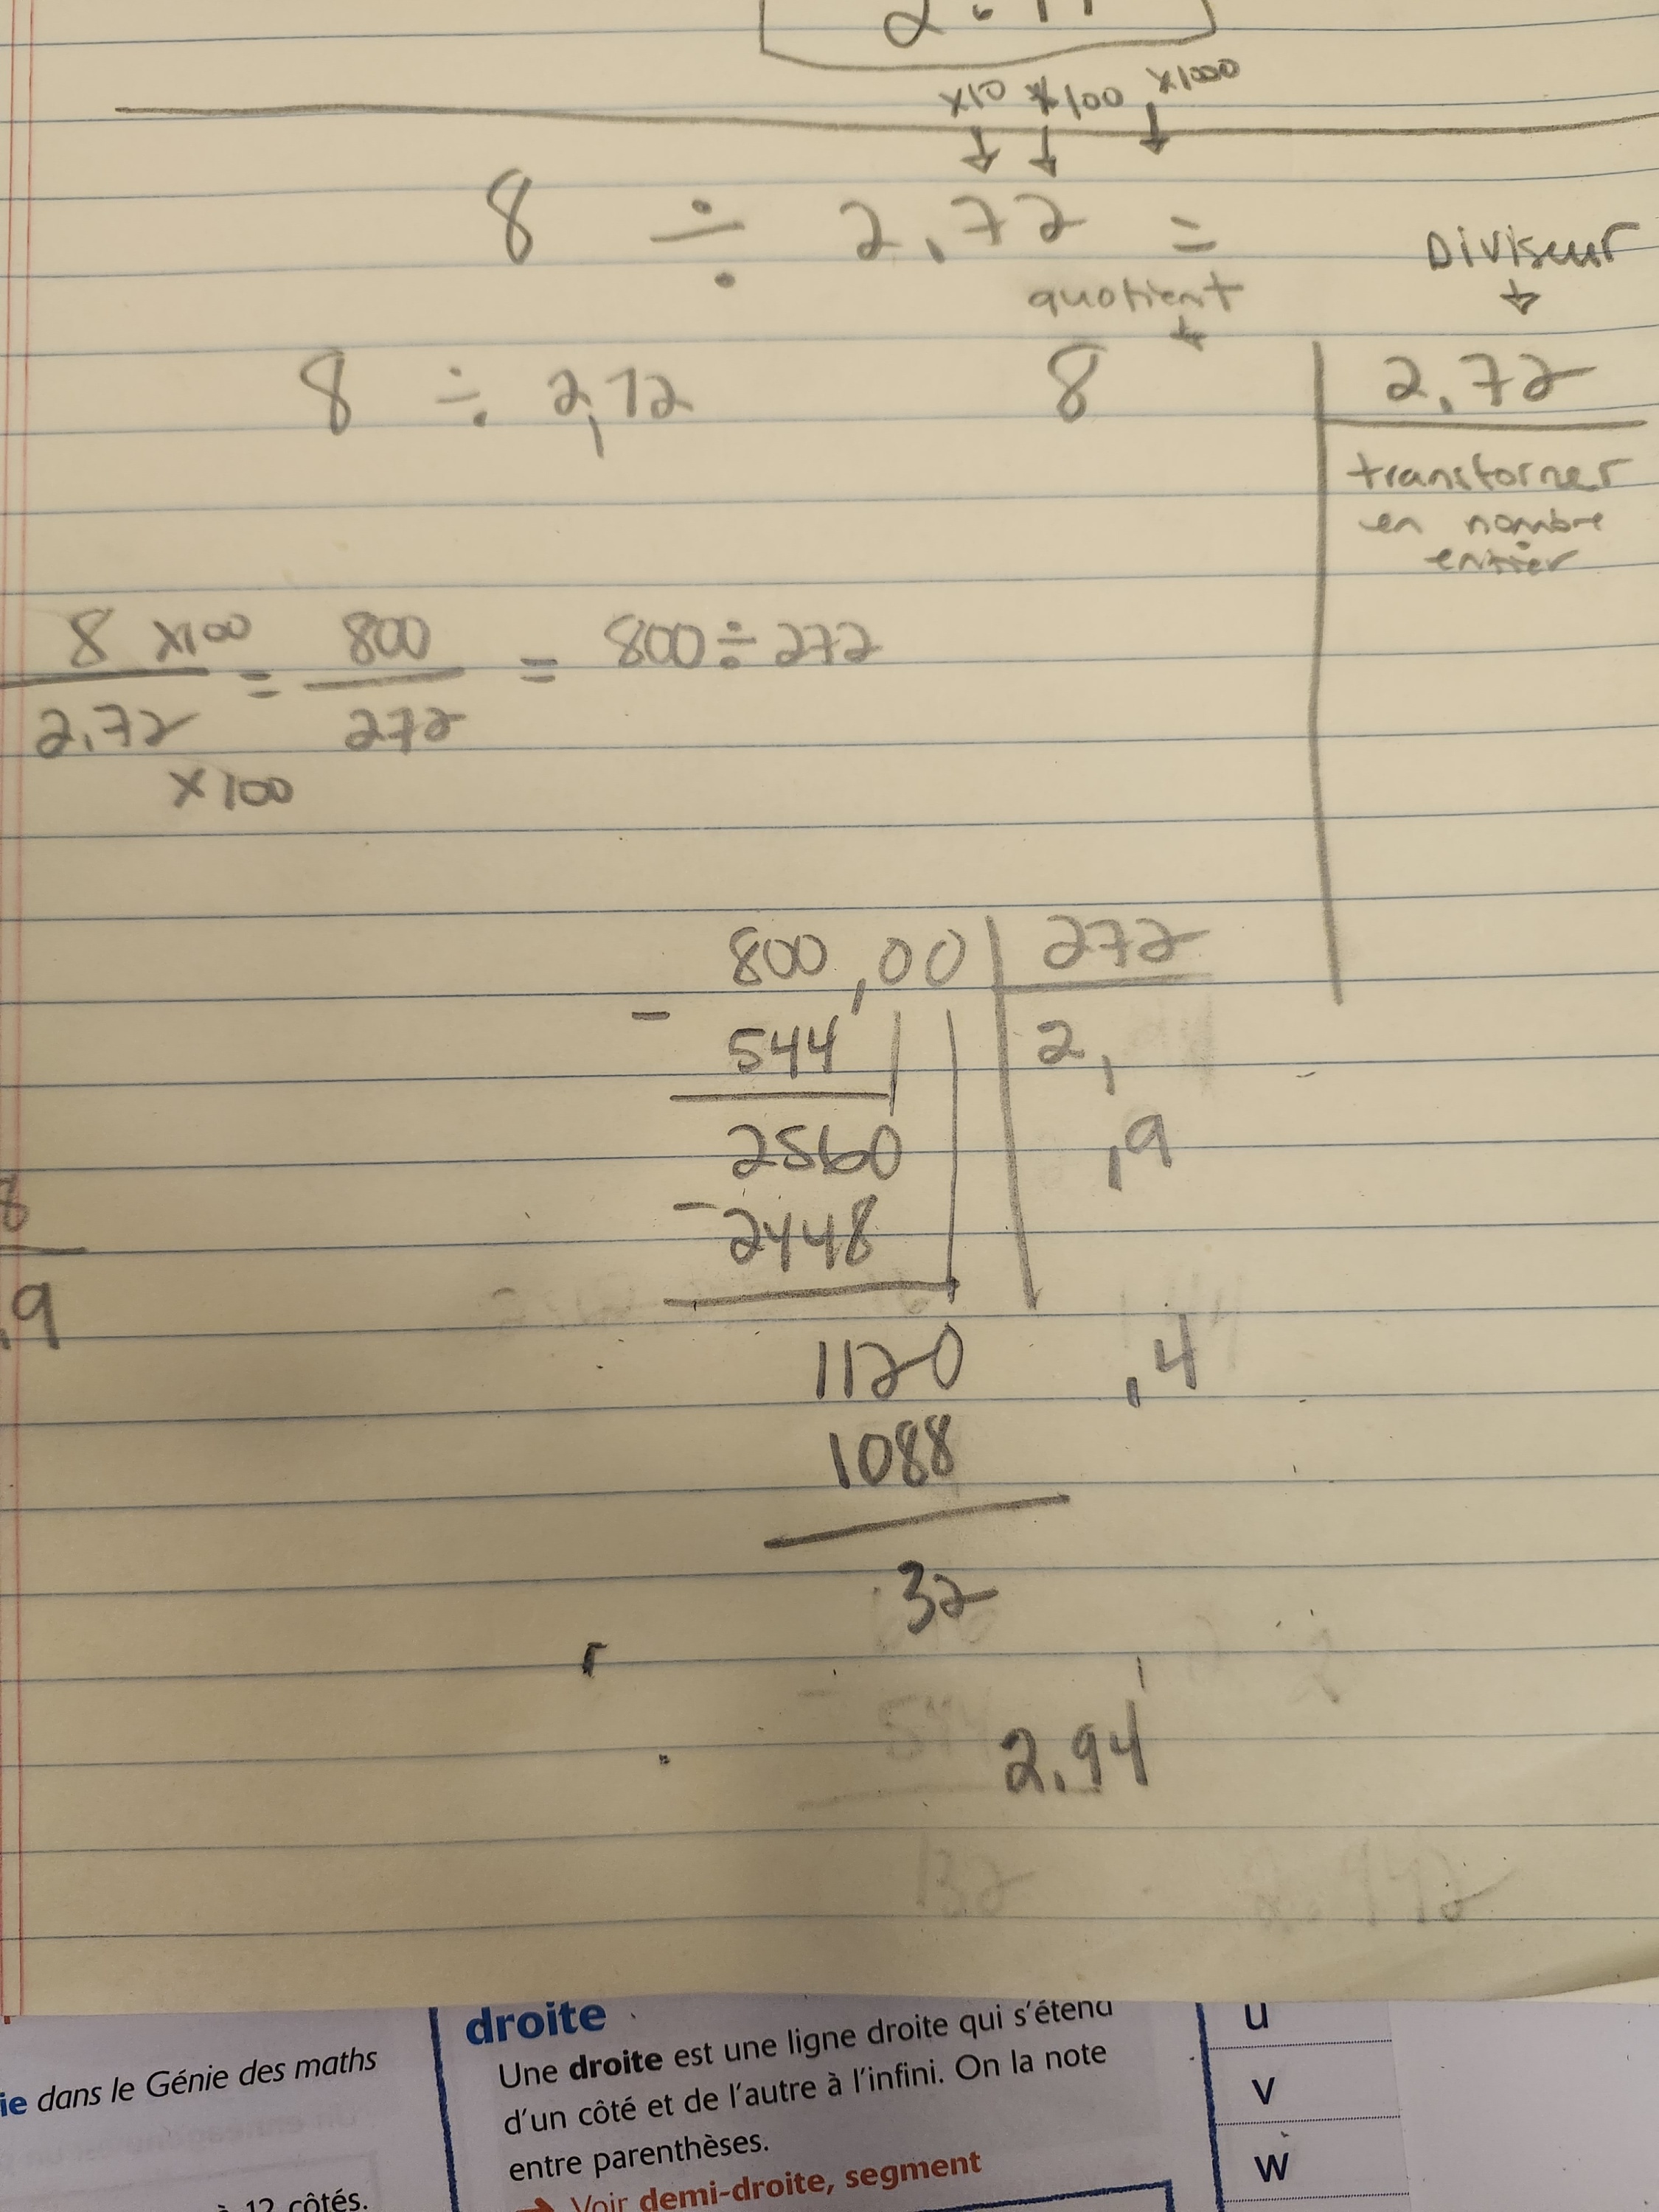 x10 x100 x1000
8 ÷ 2,72 =
quotient
Diviseur
8 ÷ 2,72
8
2,72
transformer
en nombre
entier
8 x100
2,72
x100
=
800
272
= 800 ÷ 272
800,00
272
- 544
2,
2560
,9
- 2448
8
,9
1120
,4
1088
32
2,94
droite
Une droite est une ligne droite qui s'étend
d'un côté et de l'autre à l'infini. On la note
entre parenthèses.
→ Voir demi-droite, segment
ie dans le Génie des maths
à 12 côtés.
u
v
w